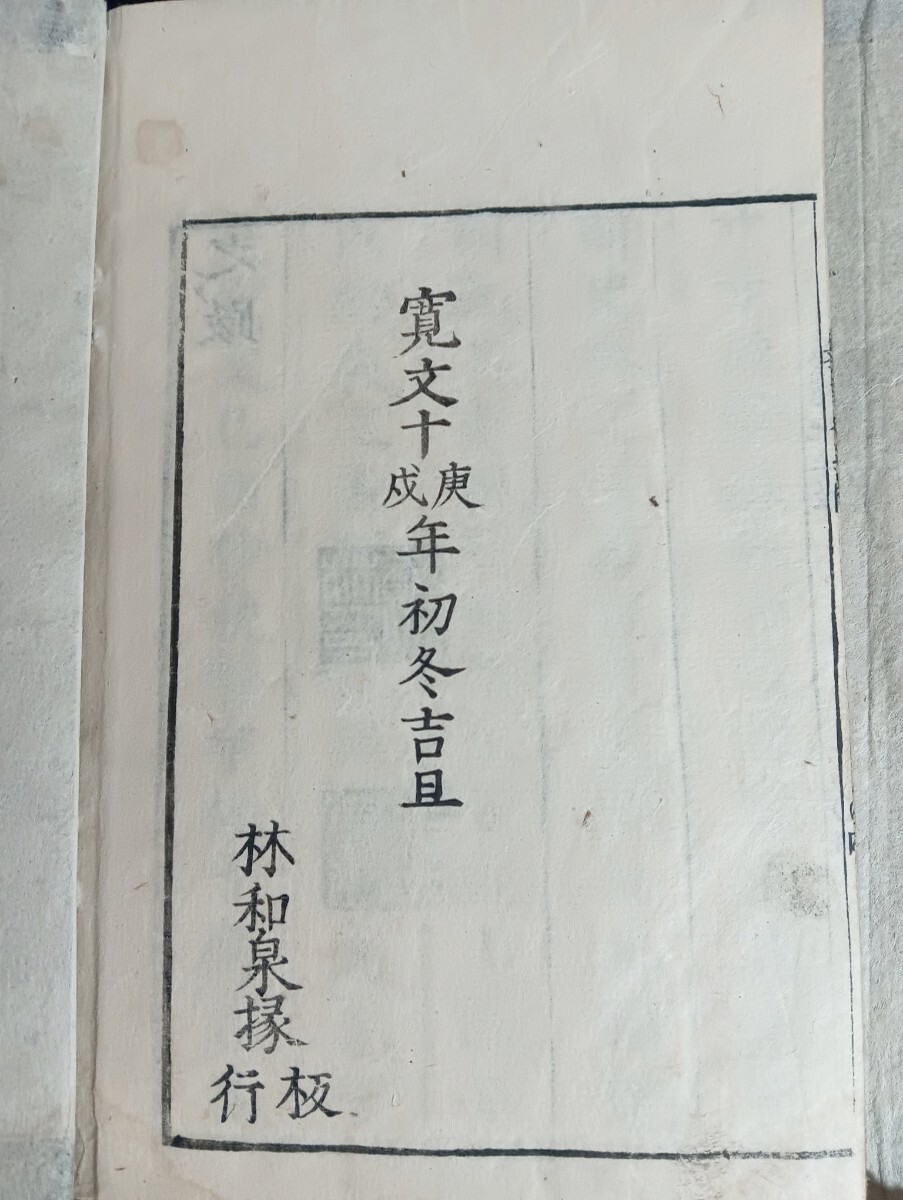 寛文十庚戌年初冬吉旦
林和泉掾板行